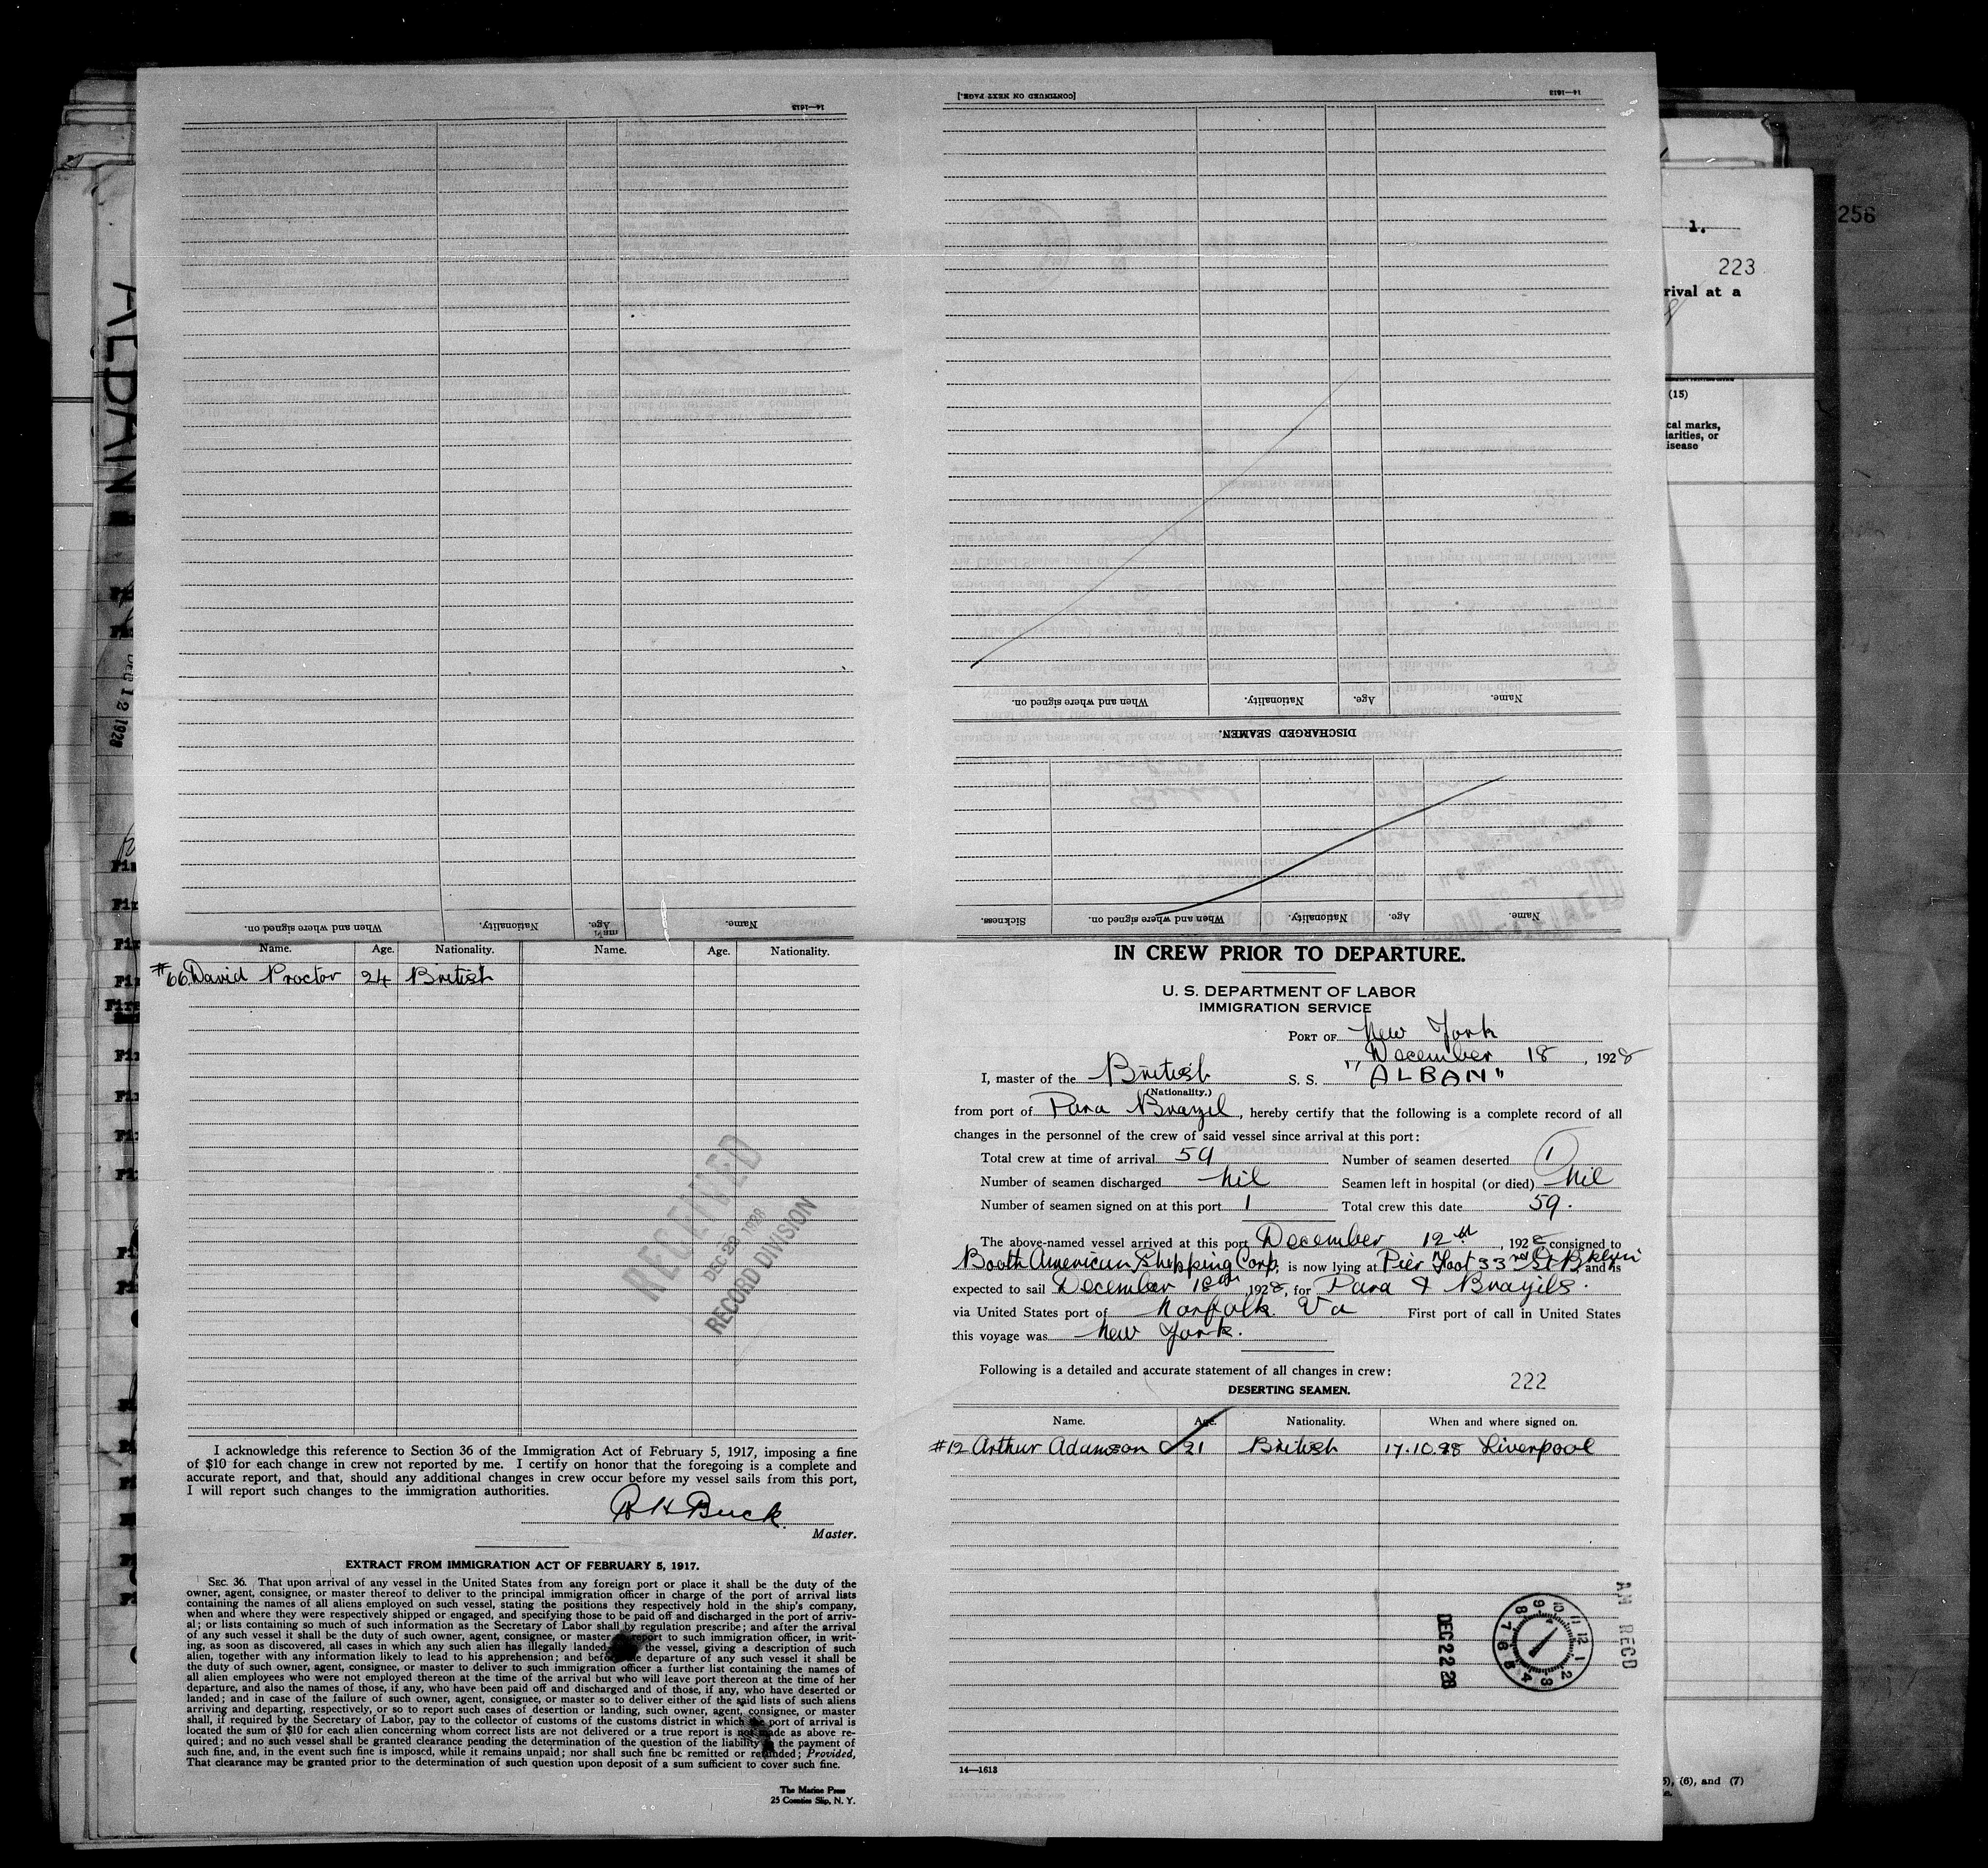 14—1613
When and where signed on.
Nationality.
Age.
Name.
[CONTINUED ON NEXT PAGE.]
14—1613
When and where signed on.
Nationality.
Age.
Name.
DISCHARGED SEAMEN.
Sickness.
When and where signed on.
Nationality.
Age.
Name.
Name. Age. Nationality. Name. Age. Nationality.
#66 David Proctor 24 British
RECEIVED
DEC 22 1928
RECORD DIVISION
I acknowledge this reference to Section 36 of the Immigration Act of February 5, 1917, imposing a fine
of $10 for each change in crew not reported by me. I certify on honor that the foregoing is a complete and
accurate report, and that, should any additional changes in crew occur before my vessel sails from this port,
I will report such changes to the immigration authorities.
R H Buck
Master.
EXTRACT FROM IMMIGRATION ACT OF FEBRUARY 5, 1917.
SEC. 36. That upon arrival of any vessel in the United States from any foreign port or place it shall be the duty of the
owner, agent, consignee, or master thereof to deliver to the principal immigration officer in charge of the port of arrival lists
containing the names of all aliens employed on such vessel, stating the positions they respectively hold in the ship's company,
when and where they were respectively shipped or engaged, and specifying those to be paid off and discharged in the port of arriv-
al; or lists containing so much of such information as the Secretary of Labor shall by regulation prescribe; and after the arrival
of any such vessel it shall be the duty of such owner, agent, consignee, or master to report to such immigration officer, in writ-
ing, as soon as discovered, all cases in which any such alien has illegally landed the vessel, giving a description of such
alien, together with any information likely to lead to his apprehension; and before the departure of any such vessel it shall be
the duty of such owner, agent, consignee, or master to deliver to such immigration officer a further list containing the names of
all alien employees who were not employed thereon at the time of the arrival but who will leave port thereon at the time of her
departure, and also the names of those, if any, who have been paid off and discharged and of those, if any, who have deserted or
landed; and in case of the failure of such owner, agent, consignee, or master so to deliver either of the said lists of such aliens
arriving and departing, respectively, or so to report such cases of desertion or landing, such owner, agent, consignee, or master
shall, if required by the Secretary of Labor, pay to the collector of customs of the customs district in which the port of arrival is
located the sum of $10 for each alien concerning whom correct lists are not delivered or a true report is not made as above re-
quired; and no such vessel shall be granted clearance pending the determination of the question of the liability to the payment of
such fine, and, in the event such fine is imposed, while it remains unpaid; nor shall such fine be remitted or refunded; Provided,
That clearance may be granted prior to the determination of such question upon deposit of a sum sufficient to cover such fine.
The Marine Press
25 Coenties Slip, N. Y.
IN CREW PRIOR TO DEPARTURE.
U. S. DEPARTMENT OF LABOR
IMMIGRATION SERVICE
PORT OF New York
December 18, 1928
I, master of the British S. S. "ALBAN"
(Nationality.)
from port of Para Brazil, hereby certify that the following is a complete record of all
changes in the personnel of the crew of said vessel since arrival at this port:
Total crew at time of arrival 59 Number of seamen deserted 1
Number of seamen discharged Nil Seamen left in hospital (or died) Nil
Number of seamen signed on at this port 1 Total crew this date 59.
The above-named vessel arrived at this port December 12th, 1928 consigned to
Booth American Shipping Corp, is now lying at Pier Foot 33rd St Bklyn and is
expected to sail December 18th 1928, for Para & Brazils.
via United States port of Norfolk Va First port of call in United States
this voyage was New York.
Following is a detailed and accurate statement of all changes in crew:
222
DESERTING SEAMEN.
Name. Age. Nationality. When and where signed on.
#12 Arthur Adamson 21 British 17.10.28 Liverpool
DEC 22 28
9 10 11 12 1 2 3 4 5 6 7 8
AM RECD
14—1613
ALBAN
DEC 12 1928
256
1.
223
rival at a
(15)
cal marks,
larities, or
isease
5), (6), and (7)